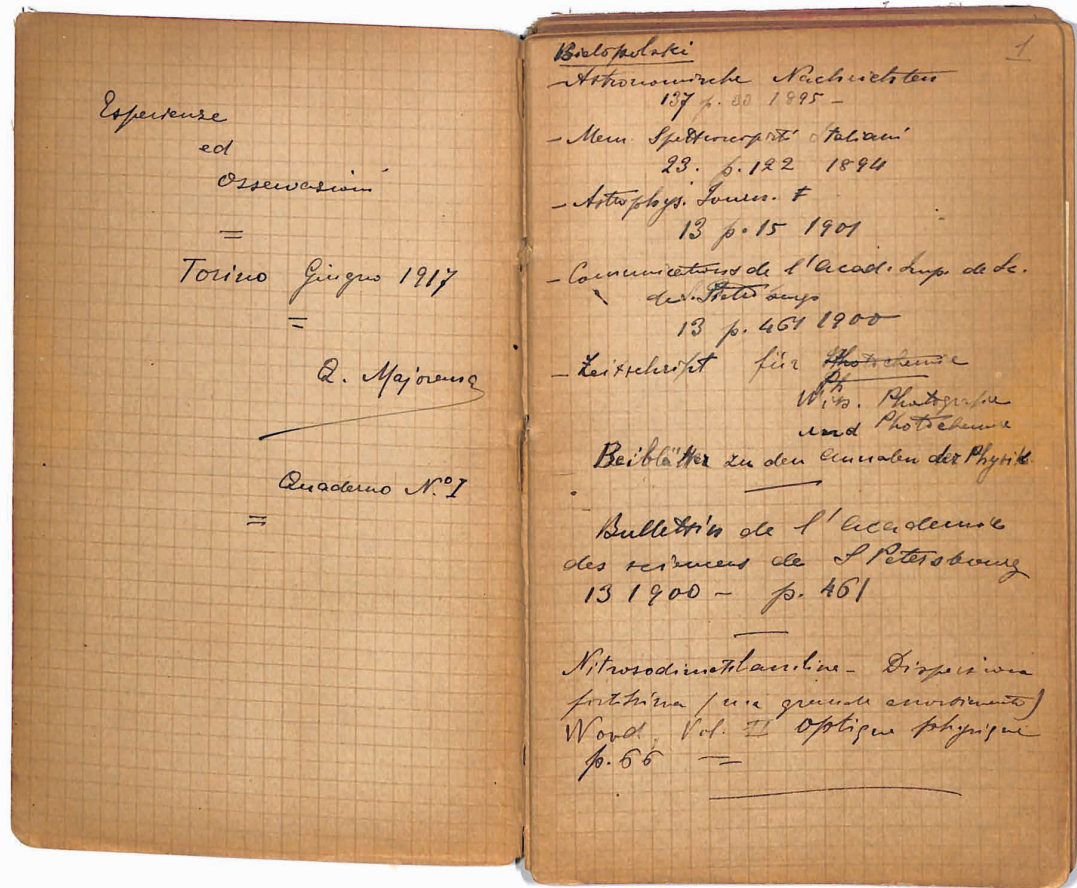 Esperienze
ed
Osservazioni
Torino Giugno 1917
Q. Majorana
Quaderno N.º I
1
Bielopolski
- Astronomische Nachrichten
137 p. 33 1895 -
- Mem Spettroscopisti Italiani
23. p. 122 1894
- Astrophys. Journ.
13 p. 15 1901
- Communications de l'Acad. Imp. de Sc.
de S. Petersbourg
13 p. 461 1900
- Zeitschrift für Photochemie
Ph
Wiss. Photografie
und Photochemie
- Beiblätter zu den Annalen der Physik
Bulletin de l'Academie
des sciences de S Petersbourg
13 1900 - p. 461
Nitrosodimetilaniline - Dispersione
fortissima (ma grande assorbimento)
Wood, Vol. II Optique physique
p. 66